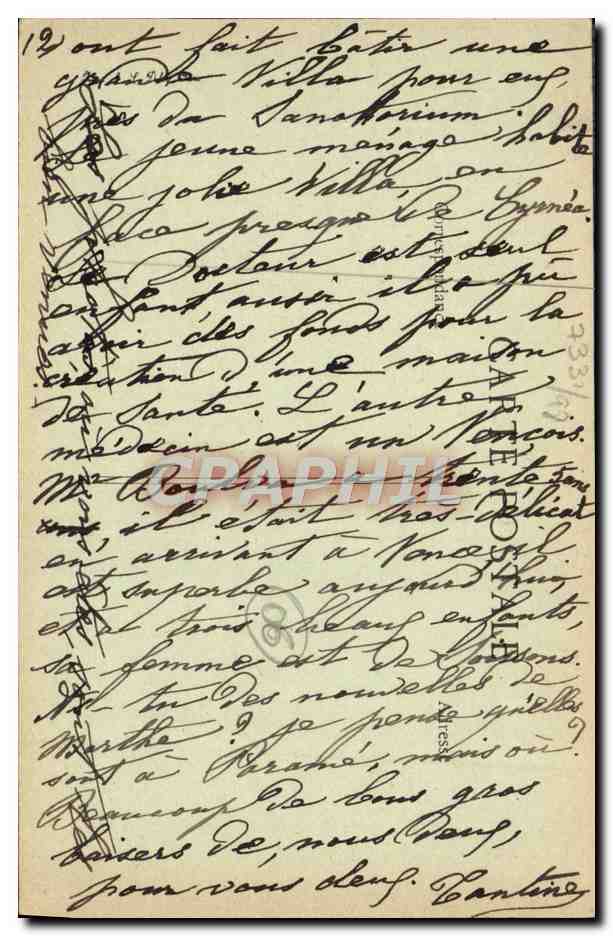 12) ont fait bâtir une
grande Villa pour eux,
près du Sanatorium.
Le jeune ménage habite
une jolie Villa, en
face presque de Cyrnéa.
Le Docteur est seul
enfant aussi il a pu
avoir des fonds pour la
création d'une maison
de Santé. L'autre
médecin est un Vençois.
Mr a trente 5 ans
il était très délicat
en arrivant à Vence il
est superbe aujourd'hui,
et a trois beaux enfants,
sa femme est de Soissons.
As-tu des nouvelles de
Marthe? je pense qu'elles
sont à Paramé, mais où?
Beaucoup de bons gros
baisers de, nous deux,
pour vous deux. Tantine
Correspondance
CARTE POSTALE
Adresse
733/98
06
CPAPHIL